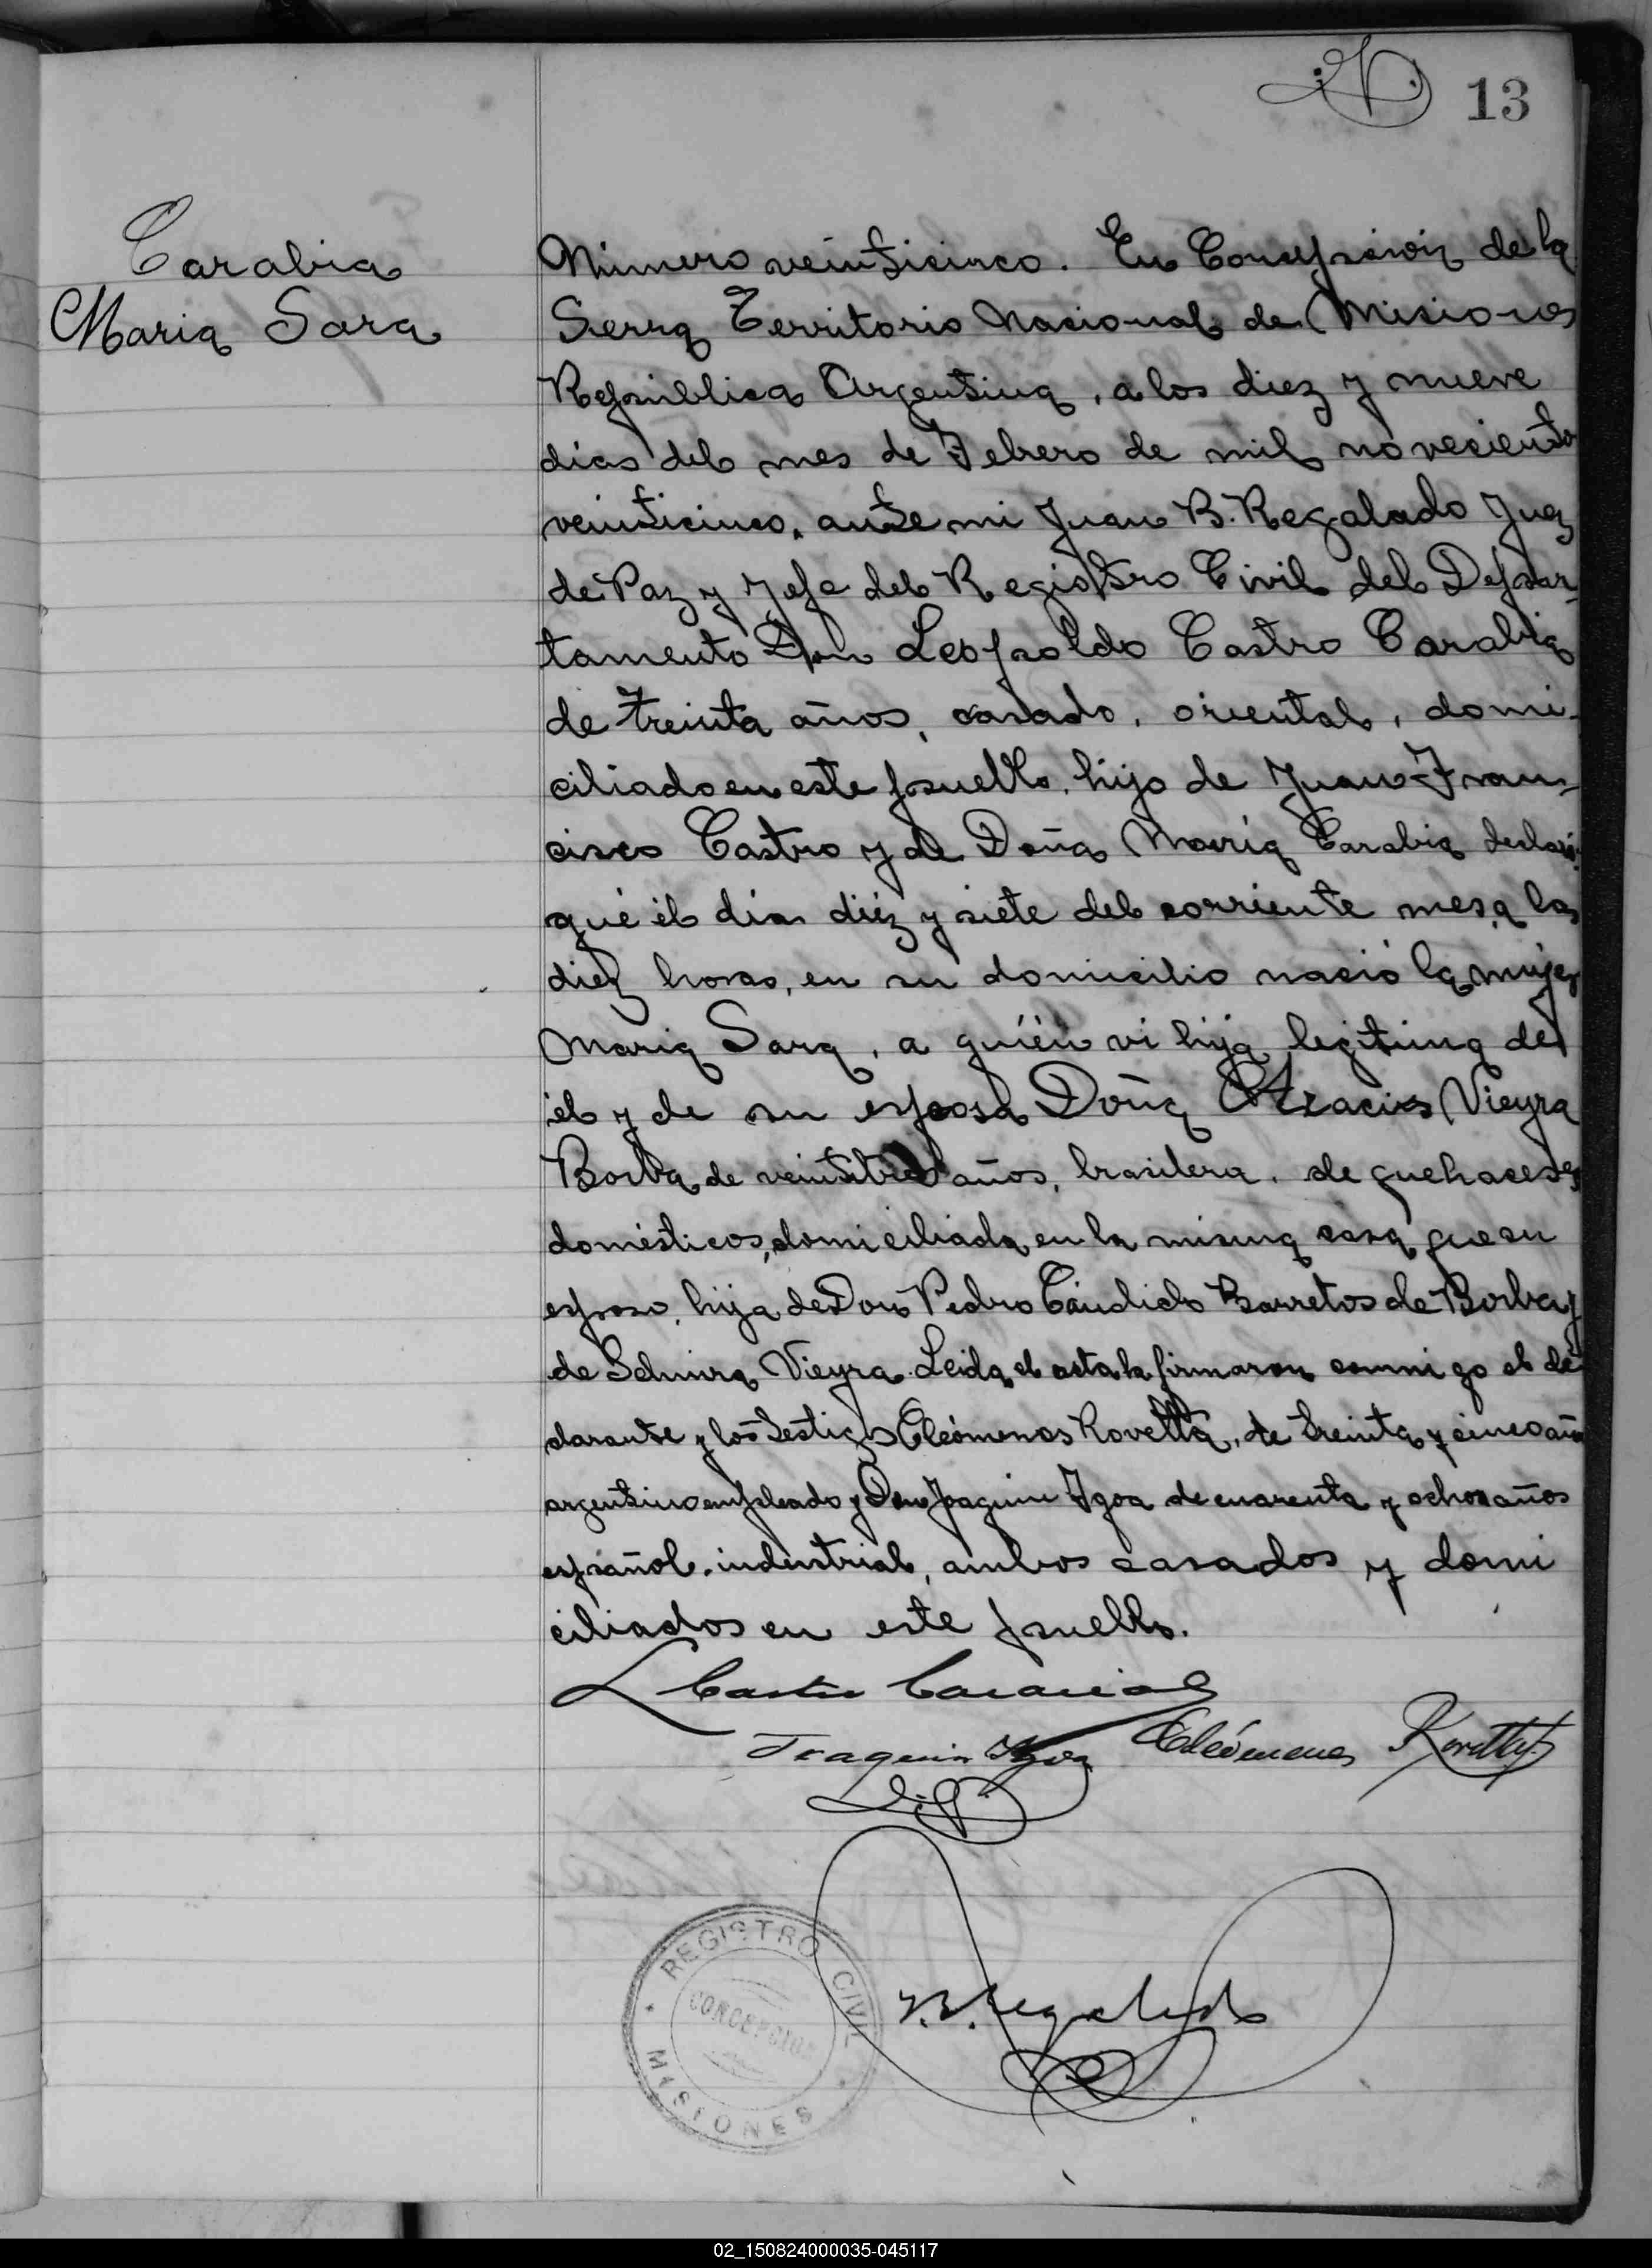 13
Carabia
Maria Sara
Número veinticinco. En Concepción de la
Sierra Territorio Nacional de Misiones
República Argentina, a los diez y nueve
dias del mes de Febrero de mil novecientos
veinticinco, ante mi Juan B. Regalado Juez
de Paz y Jefe del Registro Civil del Depar-
tamento Don Leopoldo Castro Carabia
de treinta años, casado, oriental, domi-
ciliado en este pueblo, hijo de Juan Fran-
cisco Castro y de Doña María Carabia declaró:
que él día diéz y siete del corriente mes, a las
diez horas, en su domicilio nació la mujer
Maria Sara, a quién vi hija legitima de
él y de su esposa Doña Vieyra
Borba de veintitres años, brasilera, de quehaceres
domésticos, domiciliada en la misma casa que su
esposo, hija de Don Pedro Cándido Barretos de Borba y
de Vieyra. Leida el acta la firmaron conmigo el de
clarante y los testigos Cleómenes Rovetta, de treinta y cinco años
argentino empleado y Don Joaquin Igoa de cuarenta y ocho años
español, industrial, ambos casados y domi
ciliados en este pueblo.
L Castro Carabia
Joaquin Igoa Cleómenes Rovetta
J. B. Regalado
REGISTRO CIVIL
CONCEPCION
MISIONES
02_150824000035-045117